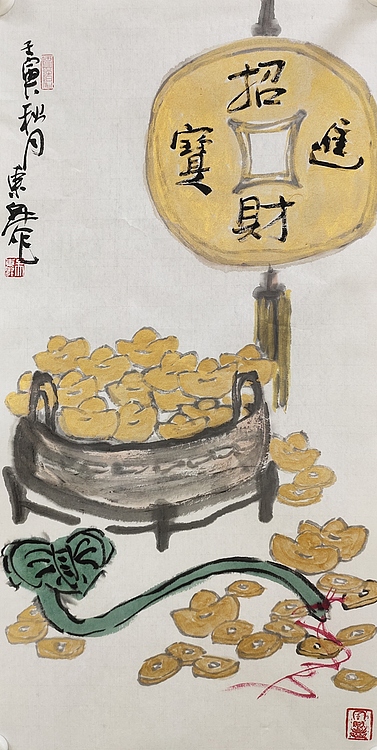 招財進寶
壬寅秋月
東